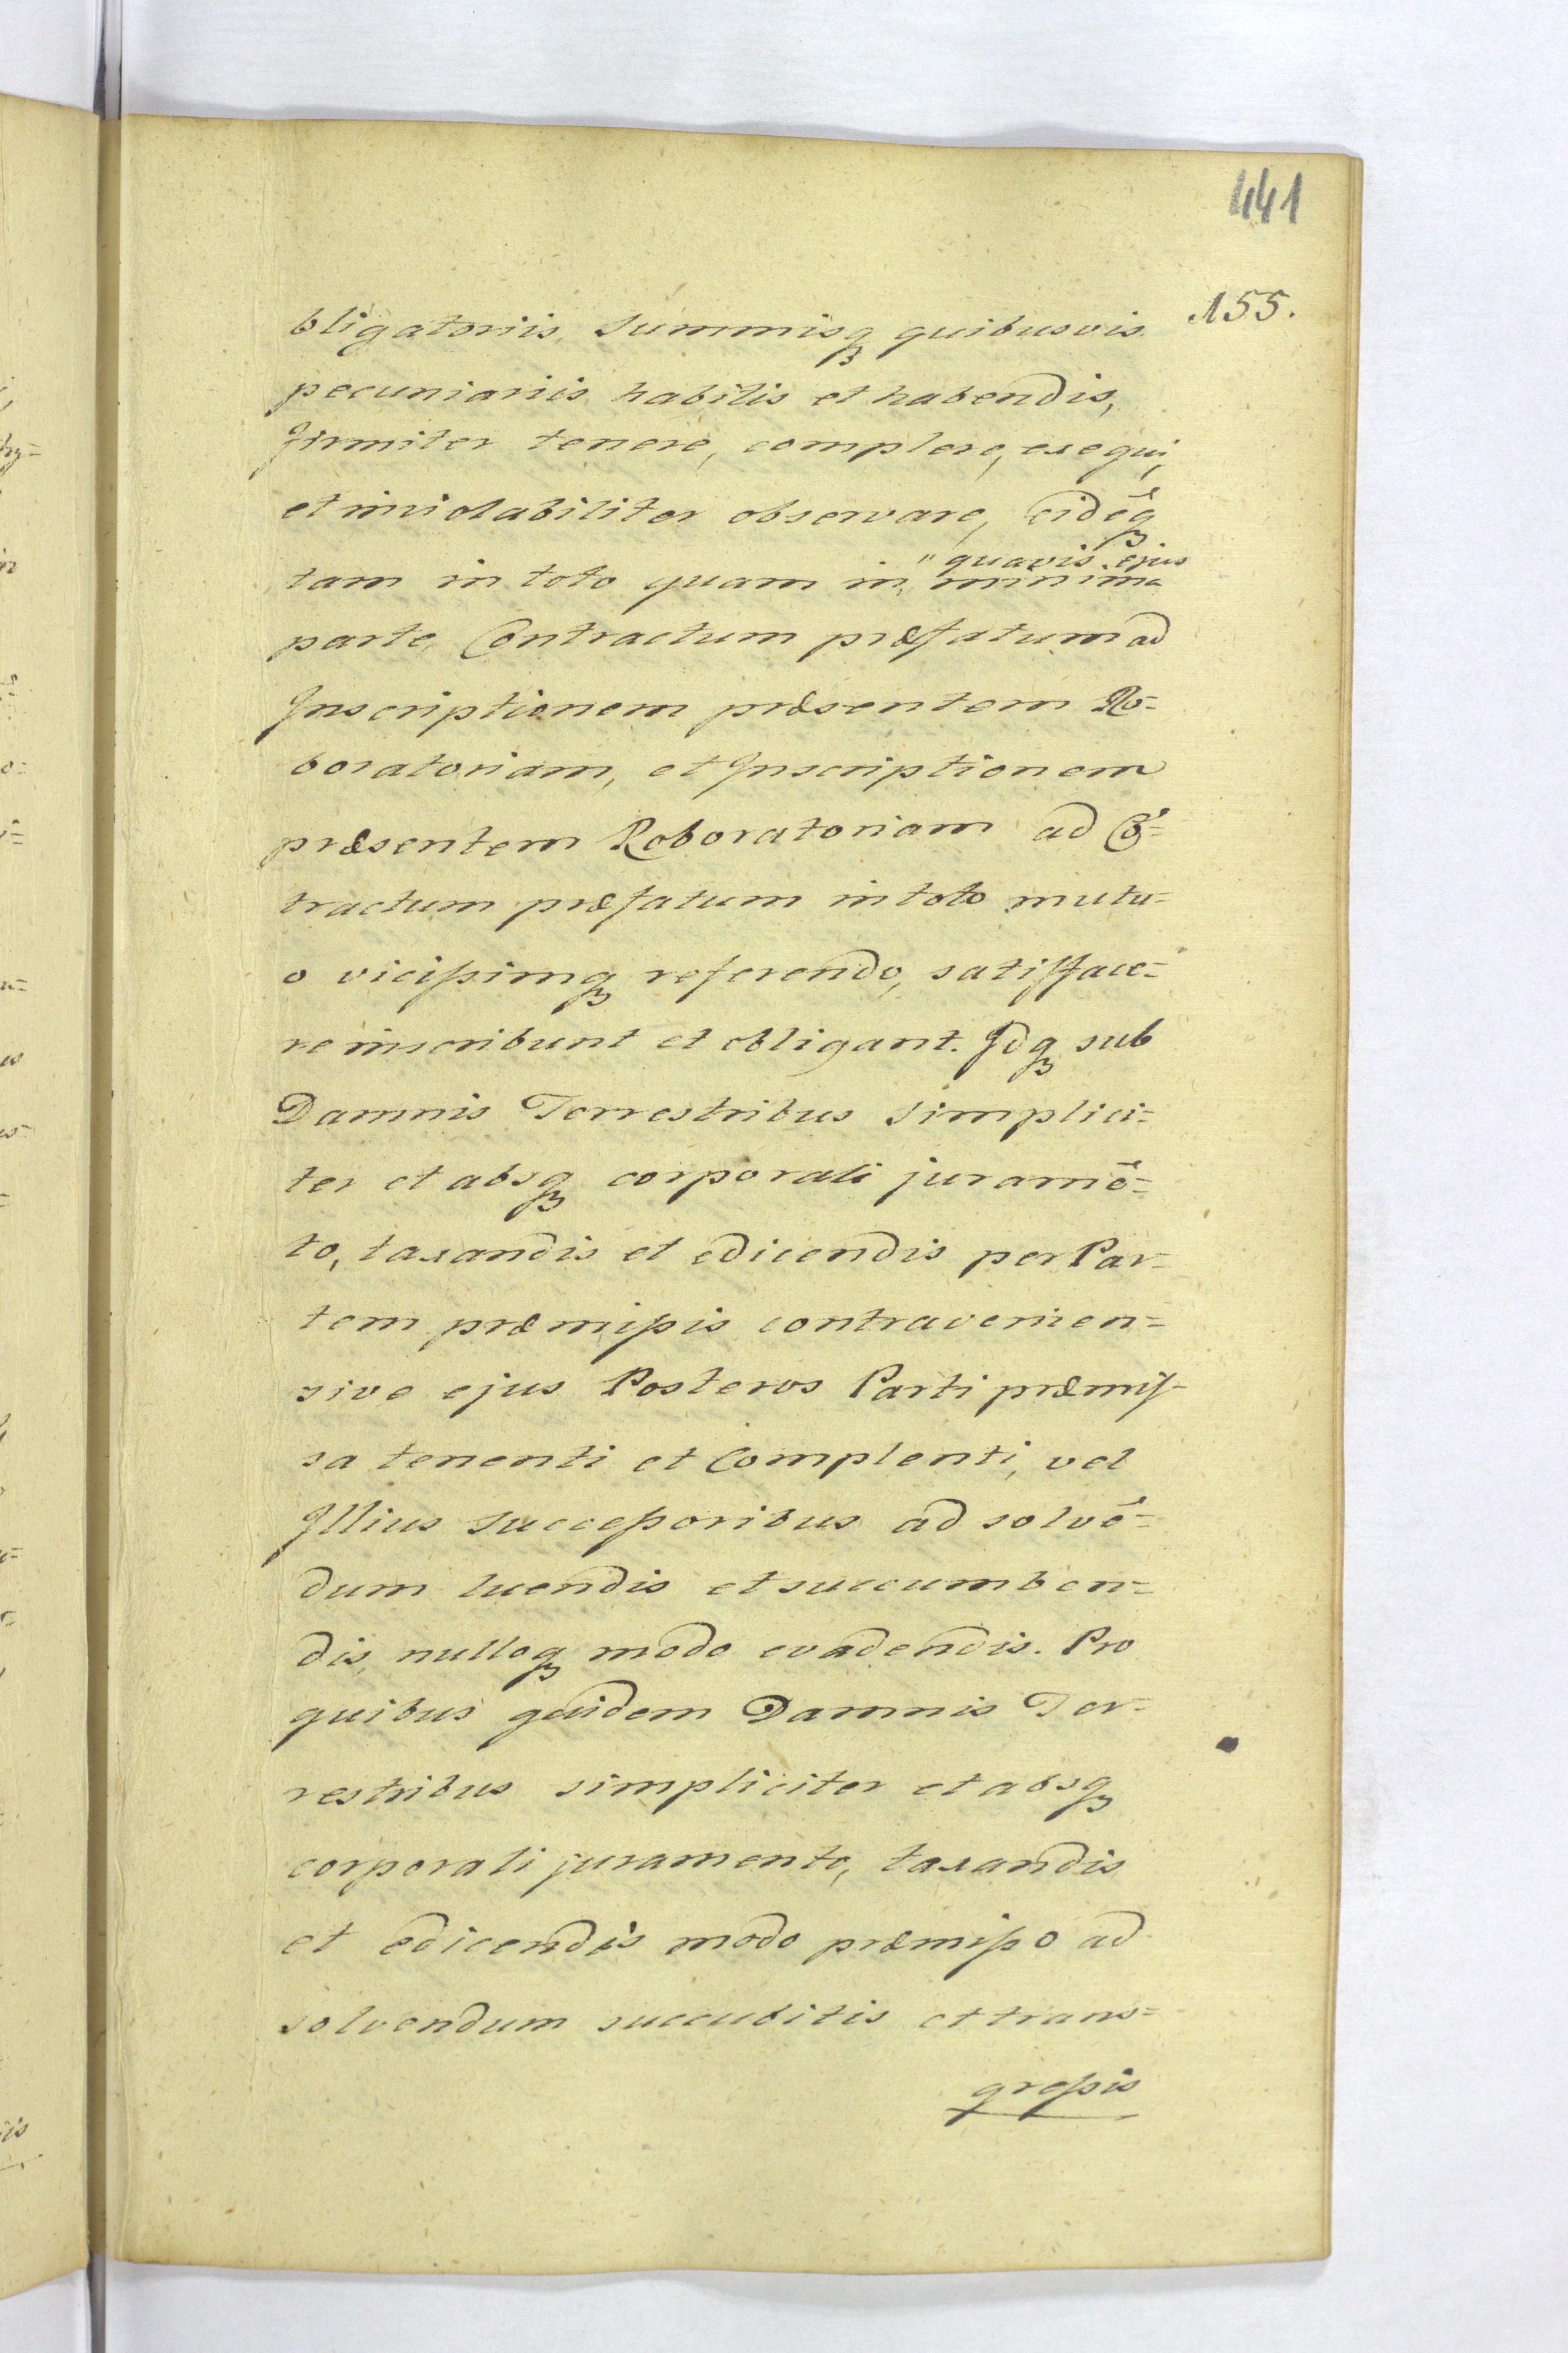 441
155.
bligatoriis, Summisqꝫ quibusvis
pecuniariis habitis et habendis,
firmiter tenere, complere, exequi,
et inviolabiliter observare, eidēqꝫ
" quavis ejus
tam in toto quam in, minima
parte, Contractum præfatum ad
Inscriptionem præsentem Ro=
boratoriam, et Inscriptionem
præsentem Roboratoriam ad Cō=
tractum præfatum in toto mutu=
o vicißimqꝫ referendo, satisface=
re inscribunt et obligant. Idqꝫ sub
Damnis Terrestribus simplici=
ter et absqꝫ corporali juramē=
to, taxandis et edicendis per Par=
tem præmißis contravenien=
sive ejus Posteros Parti præmis
sa tenenti et Complenti, vel
Illius Succeßoribus ad solvē=
dum luendis et succumben=
dis, nulloqꝫ modo evadendis. Pro
quibus quidem Damnis Ter=
restribus simpliciter et absqꝫ
corporali juramento, taxandis
et edicendis modo præmißo ad
solvendum succubitis et trans=
greßis